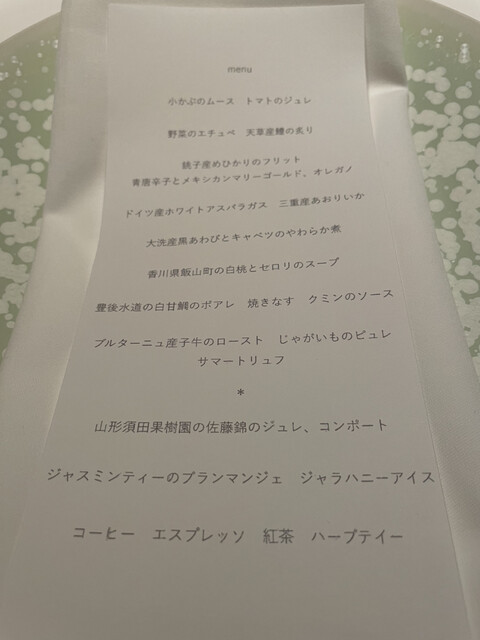 menu
小かぶのムース　トマトのジュレ
野菜のエチュベ　天草産鱧の炙り
銚子産めひかりのフリット
青唐辛子とメキシカンマリーゴールド、オレガノ
ドイツ産ホワイトアスパラガス　三重産あおりいか
大洗産黒あわびとキャベツのやわらか煮
香川県飯山町の白桃とセロリのスープ
豊後水道の白甘鯛のポアレ　焼きなす　クミンのソース
ブルターニュ産子牛のロースト　じゃがいものピュレ
サマートリュフ
*
山形須田果樹園の佐藤錦のジュレ、コンポート
ジャスミンティーのブランマンジェ　ジャラハニーアイス
コーヒー　エスプレッソ　紅茶　ハーブテイー